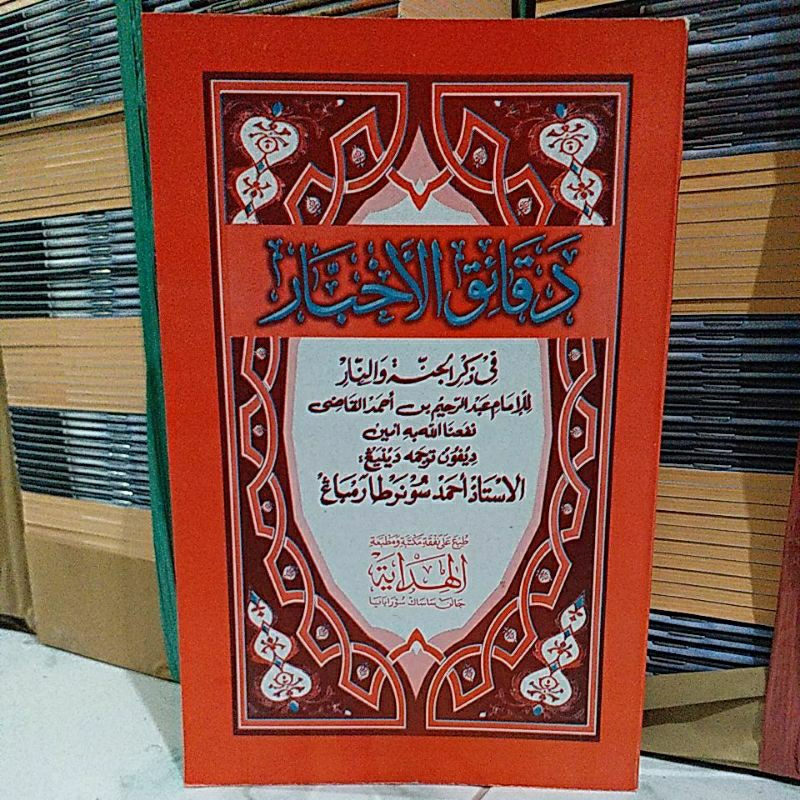 دَقَائِقُ الْأَخْبَارِ
فِى ذِكْرِ الْجَنَّةِ وَالنَّارِ
لِلْإِمَامِ عَبْدِ الرَّحِيْمِ بْنِ أَحْمَدَ الْقَاضِى
نفعنا الله به امين
الاستاذ أحمد سونرطا رمباڠ
طبع على نفقة مكتبة ومطبعة
الهداية
جالن ساساك سورابايا